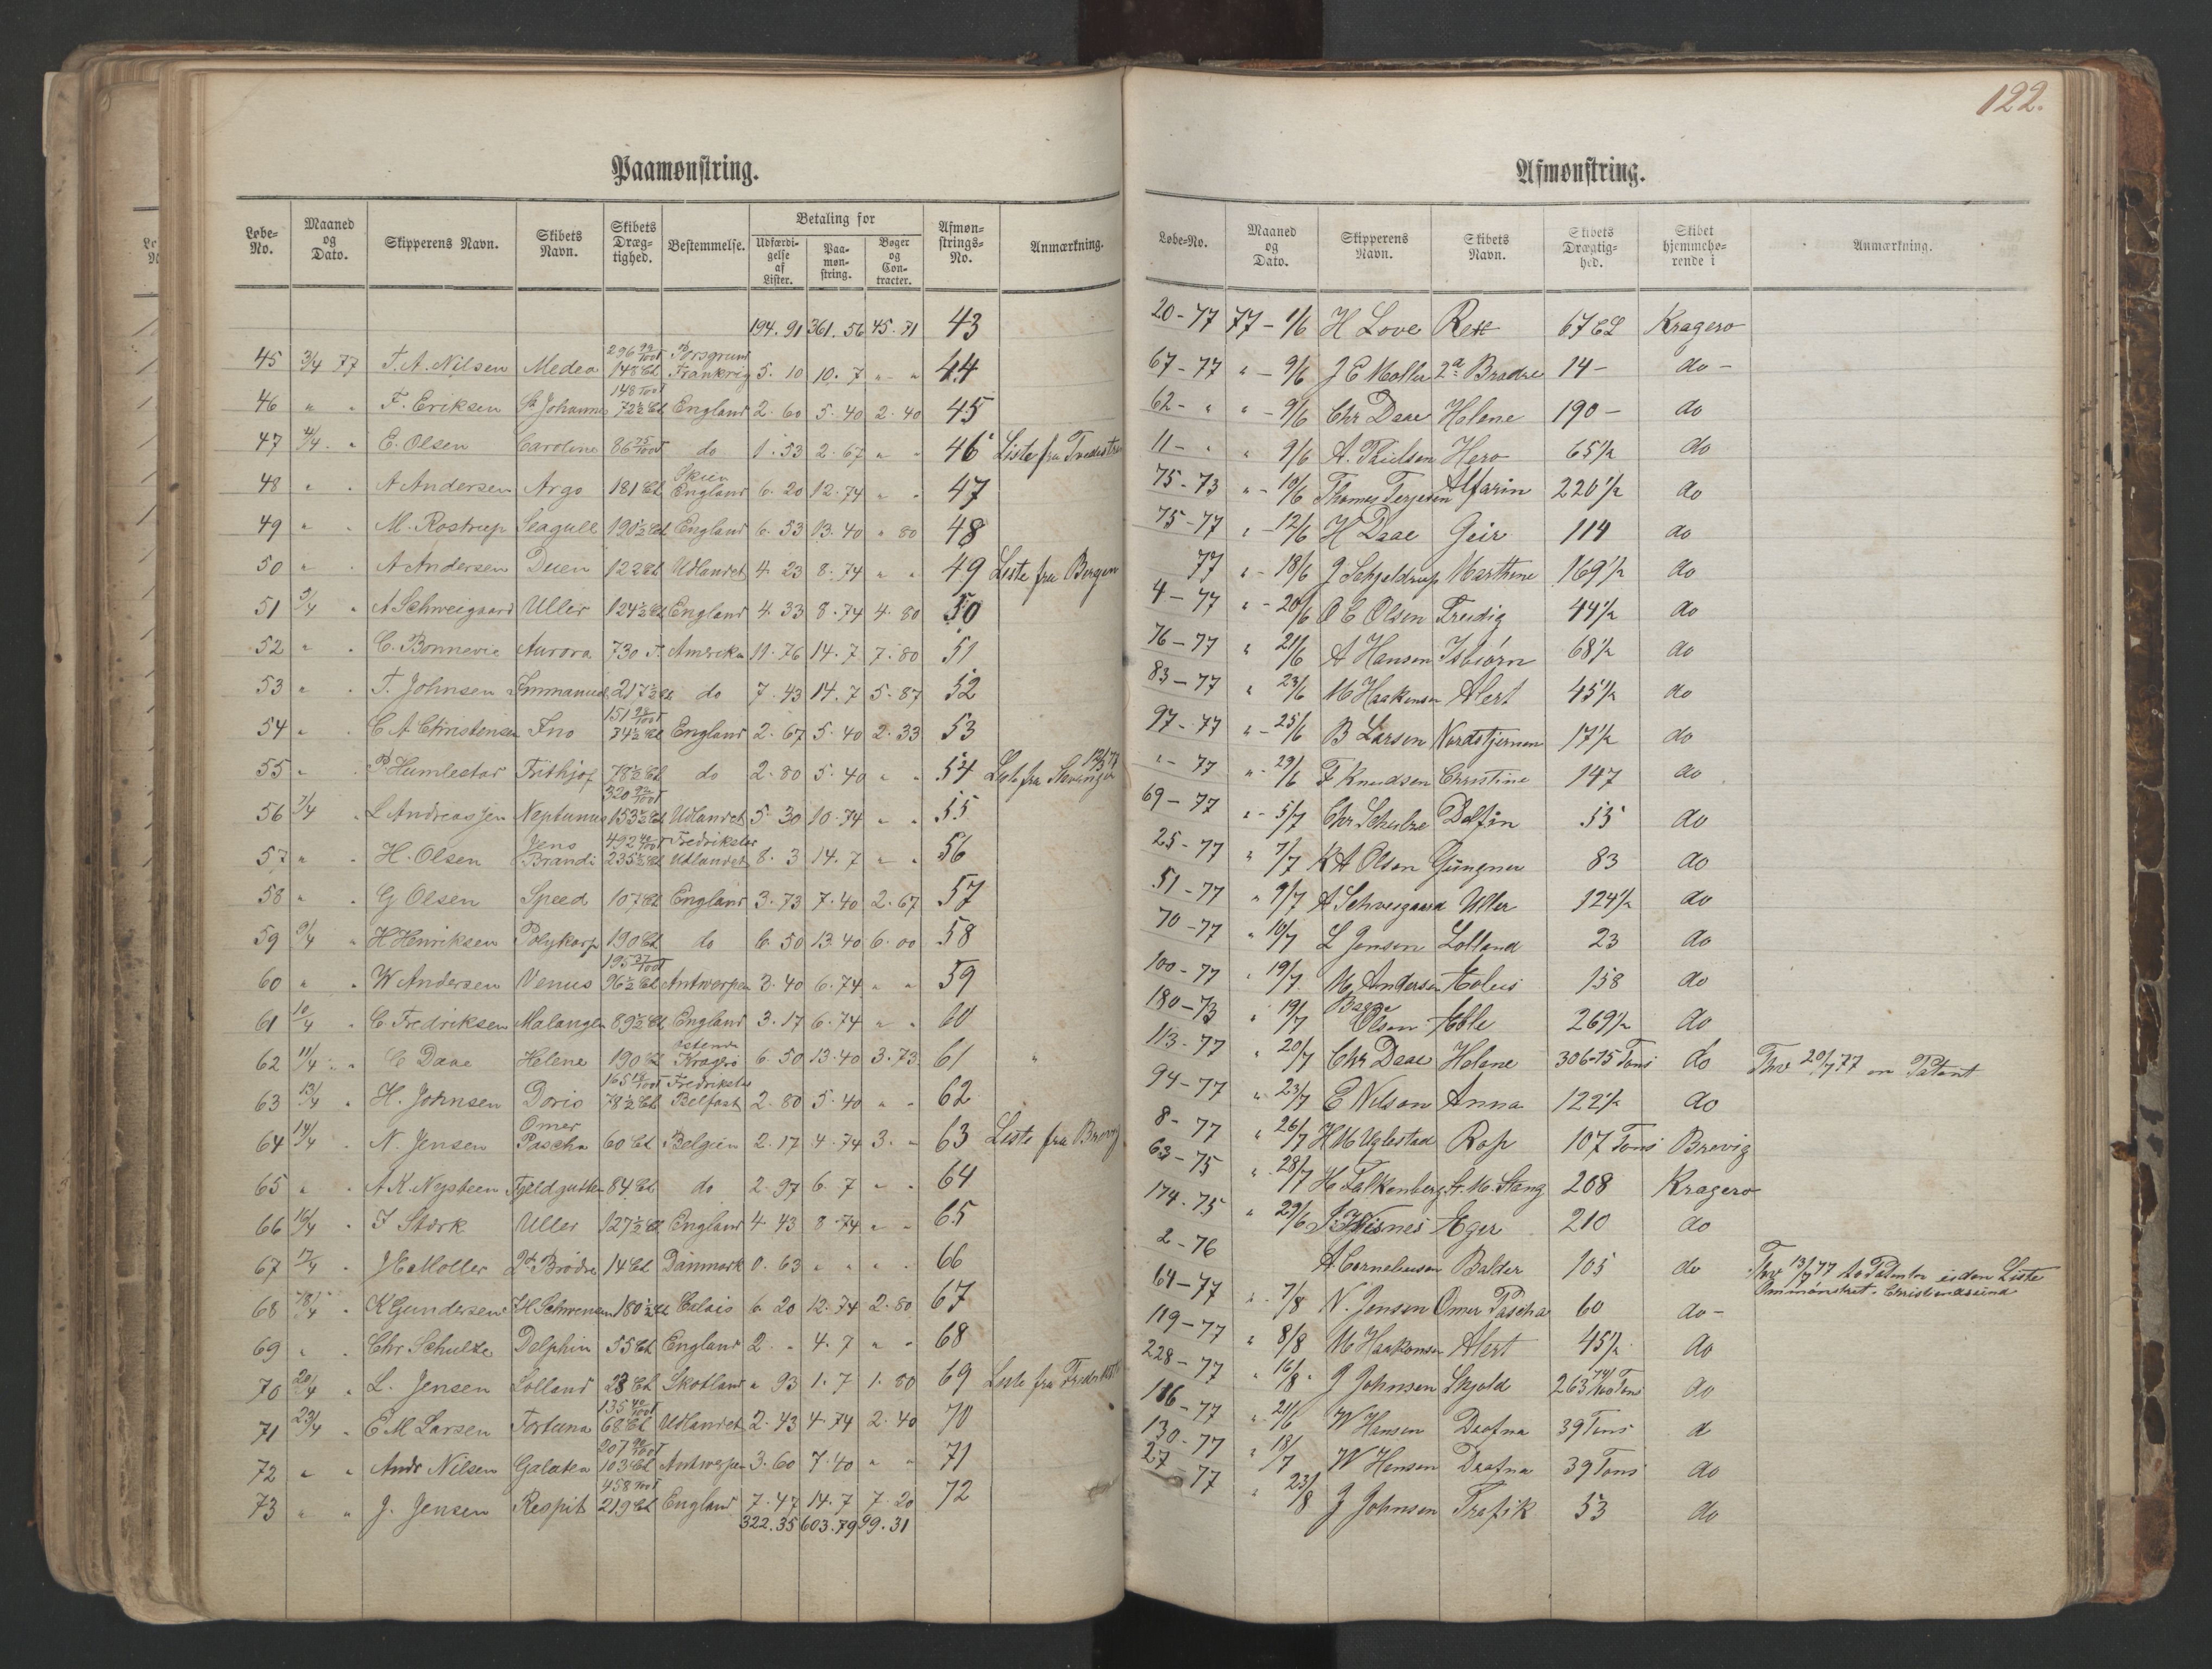 122.
Paamønstring.
Løbe-No. Maaned og Dato. Skipperens Navn. Skibets Navn. Skibets Dræg-tighed. Bestemmelse. Betaling for Udfærdi-gelse af Lister. Paa-møn-string. Bøger og Con-tracter. Afmøn-strings-No. Anmærkning.
194.91 361.56 45.71 43
45 3/4 77 T. A. Nilsen Medea 296 99/100 T 148 Cl Porsgrund Frankrig 5. 10 10. 7 " " 44
46 " " F. Eriksen St Johannes 148 Tool 72½ Cl England 2. 60 5. 40 2. 40 45
47 4/4 " E. Olsen Caroline 86 75/100 do 1. 53 2. 67 " " 46 Liste fra
48 " " A Andersen Argo 181 Cl Skien England 6. 20 12. 74 " " 47
49 " " M. Rostrup Seagull 190½ Cl England 6. 53 13. 40 " 80 48
50 " " A Andersen Duen 122 Cl Udlandet 4. 23 8. 74 " " 49 Liste fra Bergen
51 5/4 " A Schweigaard Uller 124½ Cl England 4. 33 8. 74 4. 80 50
52 " " C. Bonnevie Aurora 730 T. Amerika 11. 76 14. 7 7. 80 51
53 " " T. Johnsen Immanuel 217½ Cl do 7. 43 14. 7 5. 87 52
54 " " C A Christensen Ino 151 98/100 T 74½ Cl England 2. 67 5. 40 2. 33 53
55 " " P Humlestad Frithjof 78½ Cl do 2. 80 5. 40 " " 54 Liste fra Stavanger
56 7/4 " L Andreassen Neptunus 320 92/100 T 153½ Cl Udlandet 5. 30 10. 74 " " 55
57 " " H. Olsen Jens Brandi 492 40/100 T 235½ Cl Fredrikstad Udlandet 8. 3 14. 7 " " 56
58 " " G Olsen Speed 107 Cl England 3. 73 7. 40 2. 67 57
59 9/4 " H Henriksen Polykarp 190 Cl do 6. 50 13. 40 6. 00 58
60 " " W Andersen Venus 195 37/100 T 96½ Cl Antwerpen 3. 40 6. 74 " " 59
61 10/4 " C. Fredriksen Malangen 89½ Cl England 3. 17 6. 74 " " 60
62 11/4 " C Daae Helene 190 Cl Ostende Kragerø 6. 50 13. 40 3. 73 61 "
63 13/4 " H. Johnsen Doris 165 T 78½ Cl Fredrikstad Belfast 2. 80 5. 40 " " 62
64 14/4 " N. Jensen Omer Pascha 60 Cl Belgien 2. 17 4. 74 3. " 63 Liste fra Brevig
65 " " A. K. Nysteen Fjeldgutten 84 Cl do 2. 97 6. 7 " " 64
66 16/4 " F Stórk Uller 127½ Cl England 4. 43 8. 74 " " 65
67 17/4 " J E Moller 2de Brødre 14 Cl Danmark 0. 63 " " " " 66
68 18/4 " K Gundersen H Schwensen 180½ Cl Calais 6. 20 12. 74 2. 80 67
69 " " Chr Schulze Delphin 55 Cl England 2. " 4. 7 " " 68
70 20/4 " L. Jensen Lolland 23 Cl Skotland " 93 1. 7 1. 80 69 Liste fra
71 23/4 " E M Larsen Fortuna 135 40/100 T 68 Cl Udlandet 2. 43 4. 74 2. 40 70
72 " " Andr Nilsen Galatea 207 T 103 Cl Antwerpen 3. 60 7. 40 " " 71
73 " " J. Jensen Respit 458 Tool 219 Cl England 7. 47 14. 7 7. 20 72
322.35 603.79 99.31
Afmønstring.
Løbe-No. Maaned og Dato. Skipperens Navn. Skibets Navn. Skibets Drægtig-hed. Skibet hjemmehø-rende i Anmærkning.
20-77 77 - 1/6 H Love Rex 67 CL Kragerø
67-77 " - 9/6 J E Moller 2de Brødre 14 - do -
62- " " - 9/6 Chr Daae Helene 190 - do
11- " " 9/6 A. Paulsen Hero 65½ do
75-73 " - 10/6 Thomas Terjesen Alfarin 220½ do
75-77 " - 12/6 H Daae Geir 114 do
77 " - 18/6 J Schjeldrup Marthine 169½ do
4-77 " - 20/6 O E Olsen Freidig 44½ do
76-77 " 21/6 A Hansen Isbiørn 68½ do
83-77 " 23/6 M Haakonsen Alert 45½ do
97-77 " - 25/6 B Larsen Nordstjernen 17½ do
"-77 " - 29/6 F Knudsen Christine 147 do
69-77 " - 5/7 Chr Schulze Delfin 55 do
25-77 " 7/7 K A Olsen Gungner 83 do
51-77 " 9/7 A Schweigaard Uller 124½ do
70-77 " 10/7 L Jensen Lolland 23 do
100-77 " 19/7 M Andersen Æolus 158 do
180-73 " 19/7 Bagge Olsen Æble 269½ do
113-77 " 20/7 Chr Daae Helene 306-75 Tons do Thv 20/7 77 en Patent
94-77 " 23/7 E Nilsen Anna 122½ do
8-77 " 26/7 H M Uglestad Rap 107 Tons Brevig
63-75 " 28/7 H Falkenberg Fr. M. Stang 208 Kragerø
174.75 " 29/6 J Wisnes Æger 210 do
2-76 A Corneliussen Balder 105 do Thv 13/7 77 to Patenter siden Liste Ommønstret. Christianssund
64-77 " 7/8 N. Jensen Omer Pascha 60 do -
119-77 " 8/8 M Haakonsen Alert 45½ do
228-77 " 16/8 J Johnsen Skjold 263 74/100 Tons do
186-77 " 21/6 W Hansen Drafna 39 Tons d
130-77 " 18/7 W Hansen Drafna 39 Tons do
27-77 " 23/8 J Johnsen Trafik 53 do